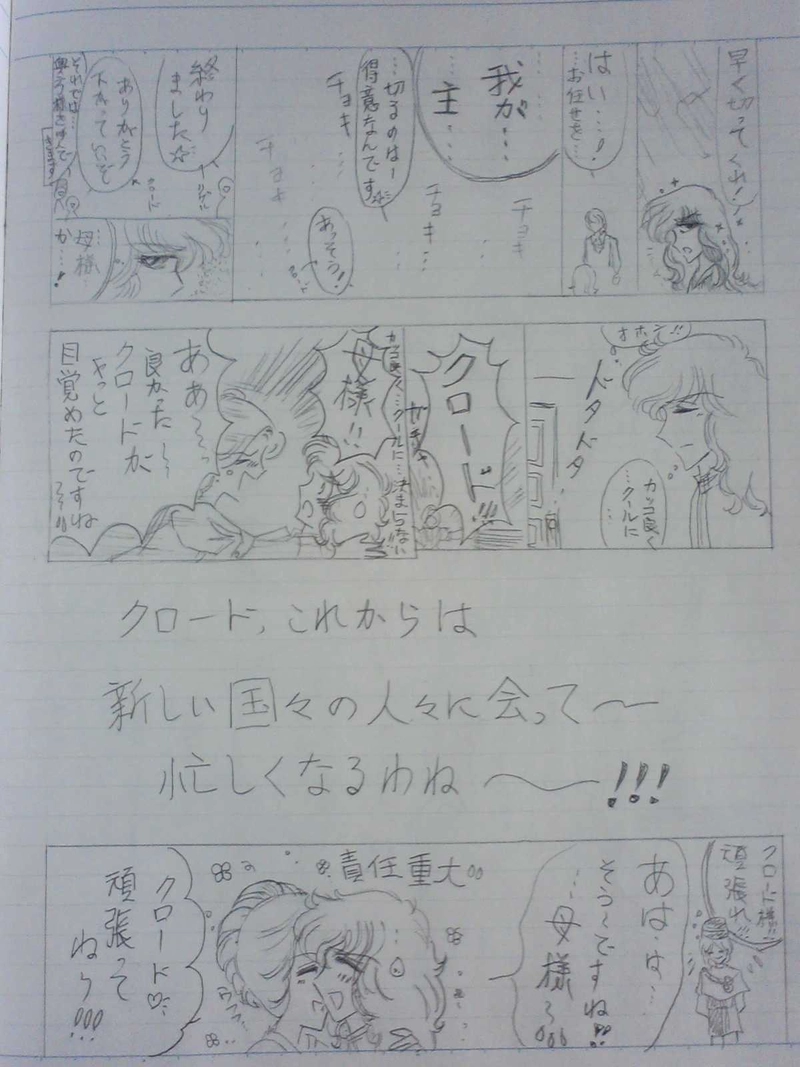 早く切ってくれ!
はい…!
お任せを…
我が…
主…
…切るのはー
得意なんです☆
チョキ
チョキ…
チョキ
チョキ
あっそう!
終わり
ました☆
ありがとう
下がっていいぞ
クロード
それでは…
…母様
か…!
オホン!!
カッコ良く
…クールに
ドタドタ
クロード!!!
ガチャ
カッコ良く…クールに…決まらない
母様!!
ああ~~っ
良かった~
クロードが
やっと
目覚めたのですね
クロード,これからは
新しい国々の人々に会って~
忙しくなるわね~!!!
クロード様!!
頑張れ!!
あは、は…
そう~ですね!!
…母様~
責任重大
クロード♡
頑張って
ね~!!!